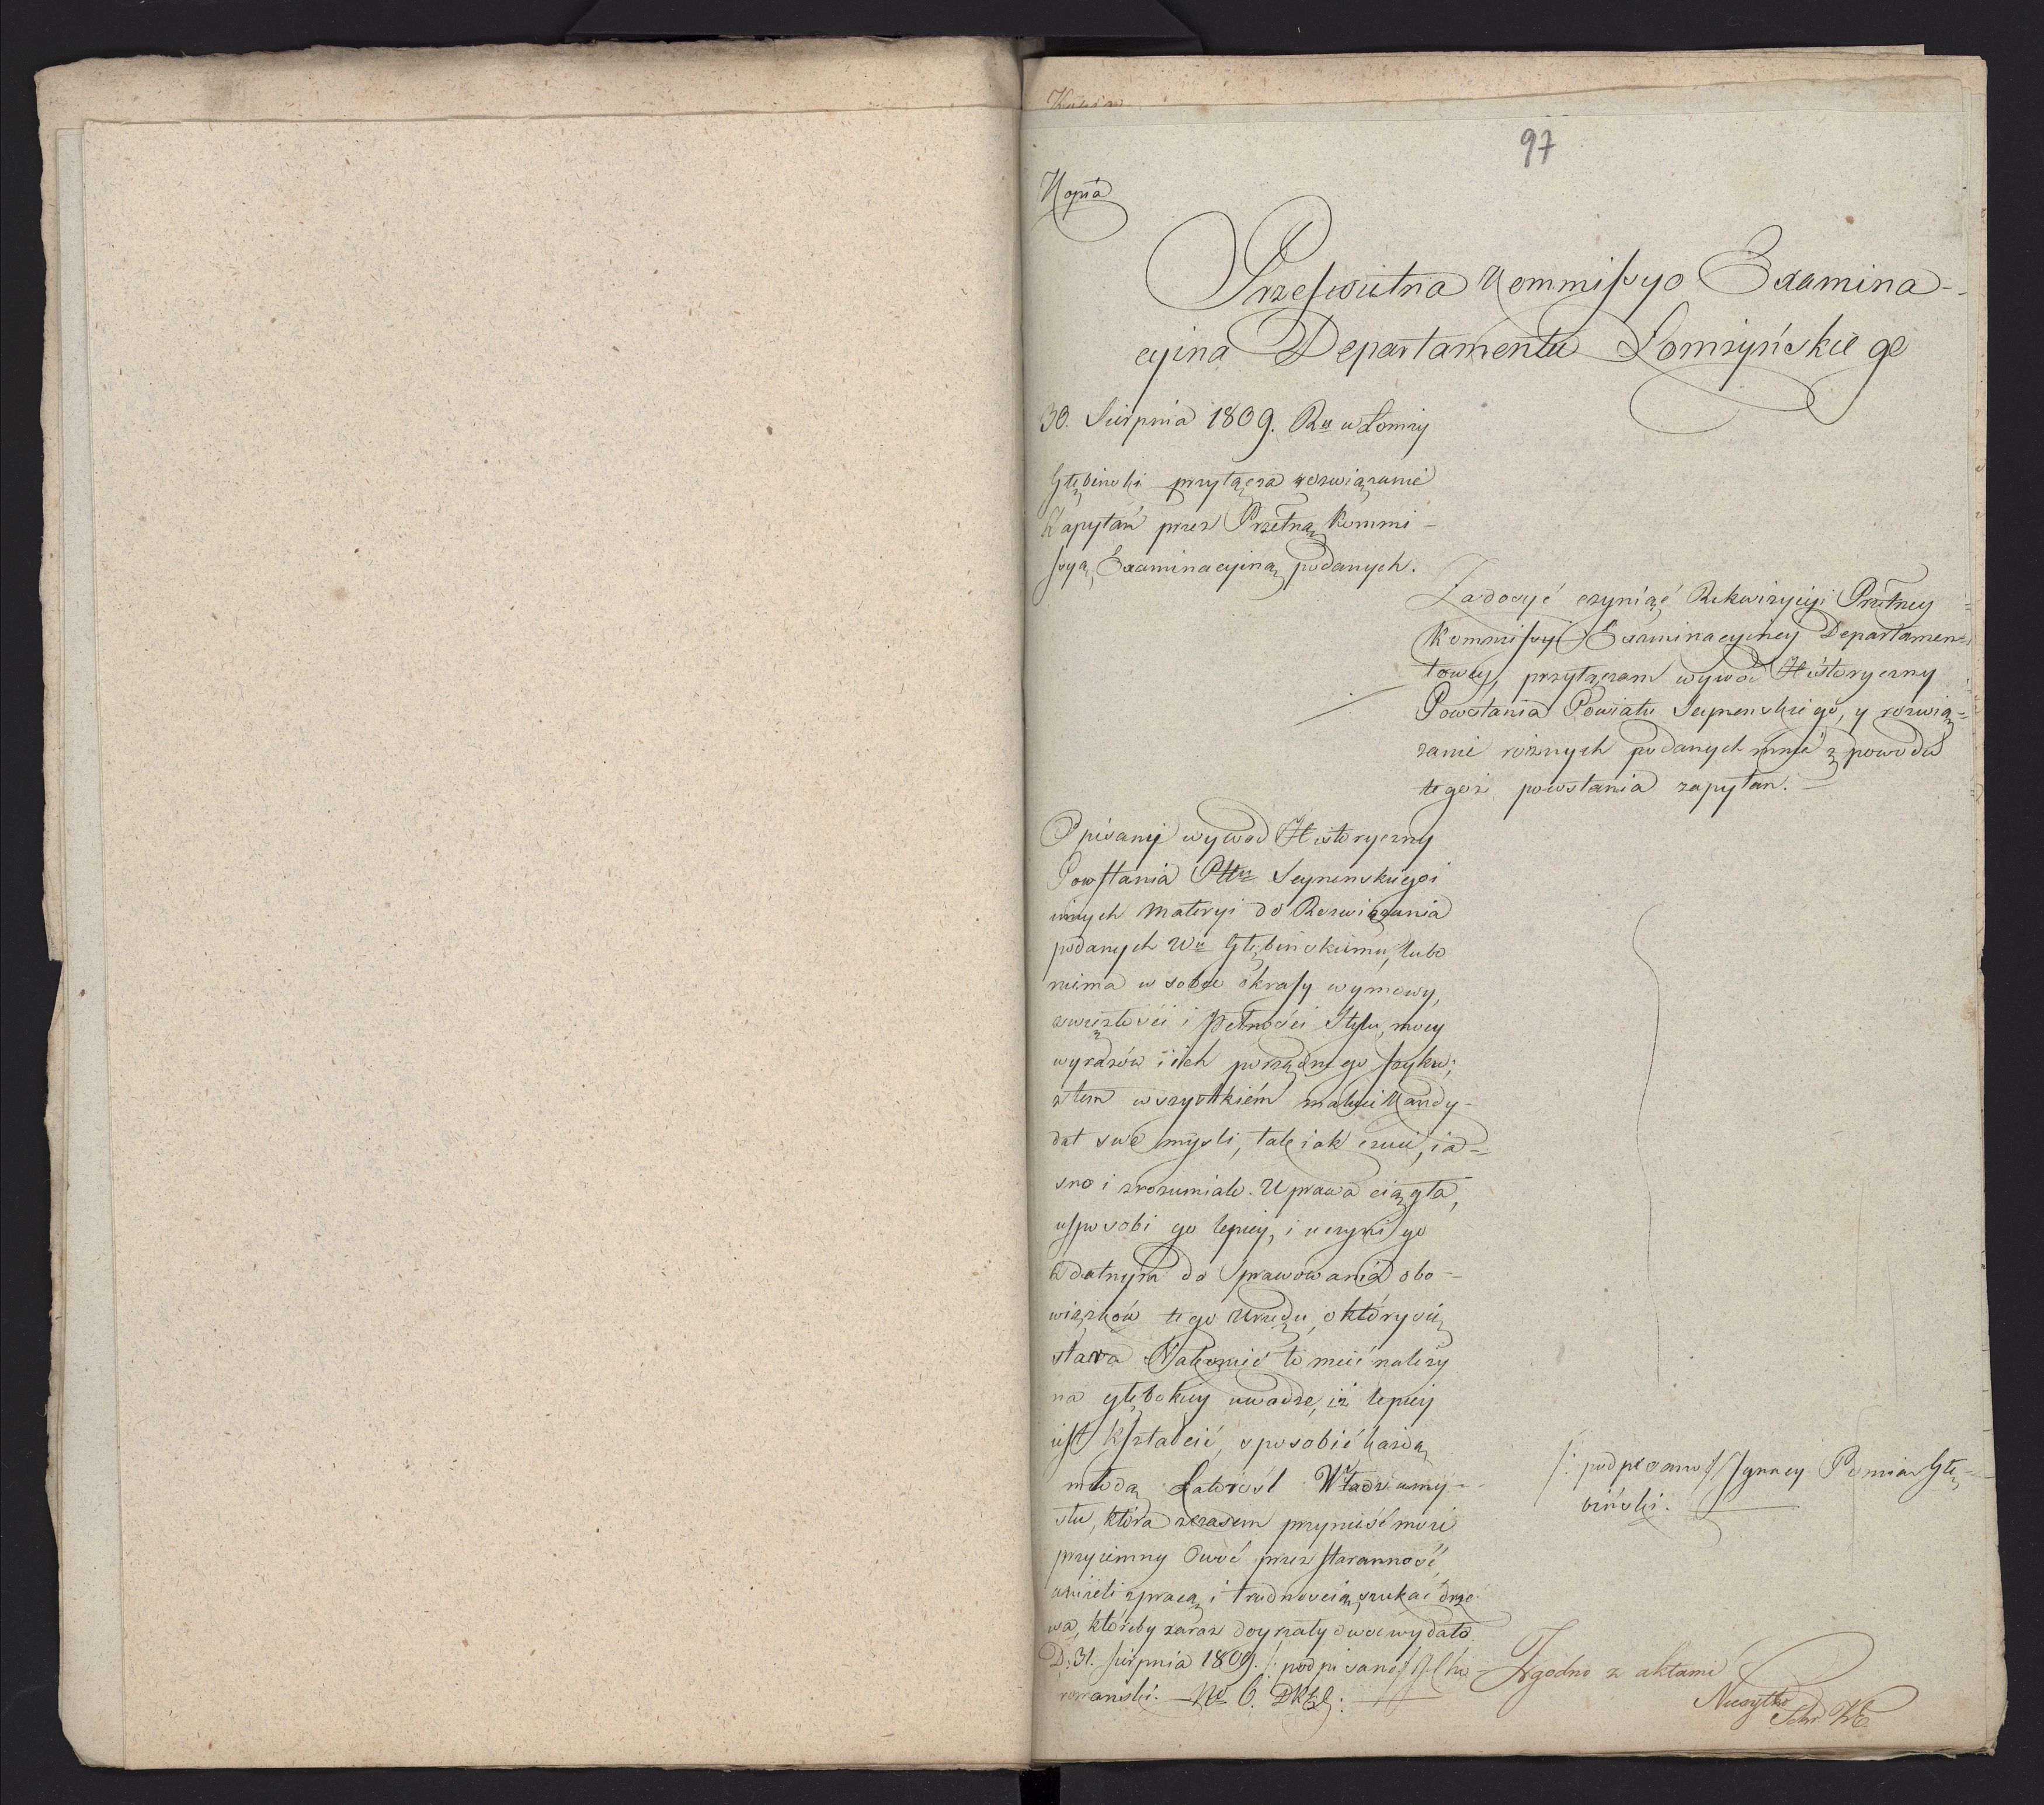 97
Kopia
Prześwietna Kommissyo Examina-
cyina Departamentu Łomżyńskiego
30. Sierpnia 1809. Ru w Łomży
Głębinski przyłącza rozwiązanie
Zapytań przez Przetną Kommi-
ssyą Examinacyiną podanych.
Zadosyć czyniąć Rekwizycyi Przetney
Kommissyi Examinacyiney Departamen-
towey, przyłączam wywod Historyczny
Powstania Powiatu Seynenskiego, y rozwią-
zanie roznych podanych mnie z powodu
tegoż powstania zapytan.
Opisany wywod Historyczny
Powstania Pttu Seynenskiego i
innych Materyi do Rozwiązania
podanych Wu Głębinskiemu, lubo
niema w sobie okrasy wymowy,
zwięzłości i pełności Stylu, mocy
wyrazów i ich porządnego szyku;
z tem wszystkiém maluie Kandy-
dat swe myśli, tak iak czuie, ia-
sno i zrozumiale. Uprawa ciągła,
usposobi go lepiey, i uczyni go
zdatnym do sprawowania obo-
wiązków tego Urzędu, o który się
stara Nakoniec to mieć należy
na głębokiey uwadze, iż lepiey
iest kształcić, sposobić każdą
młodą Latorośl Władz umy-
słu, która z czasem przynieść może
przyiemny Owoc przez staranność,
aniżeli z pracą i trudnością szukać drze-
wa, któreby zaraz doyrzały owoc wydało.
D. 31. Sierpnia 1809. /: podpisano :/
romanski. No 6. DKEŁ:
/: podpisano :/ Ignacy Pomian Głę-
biński.
Zgodno z aktami